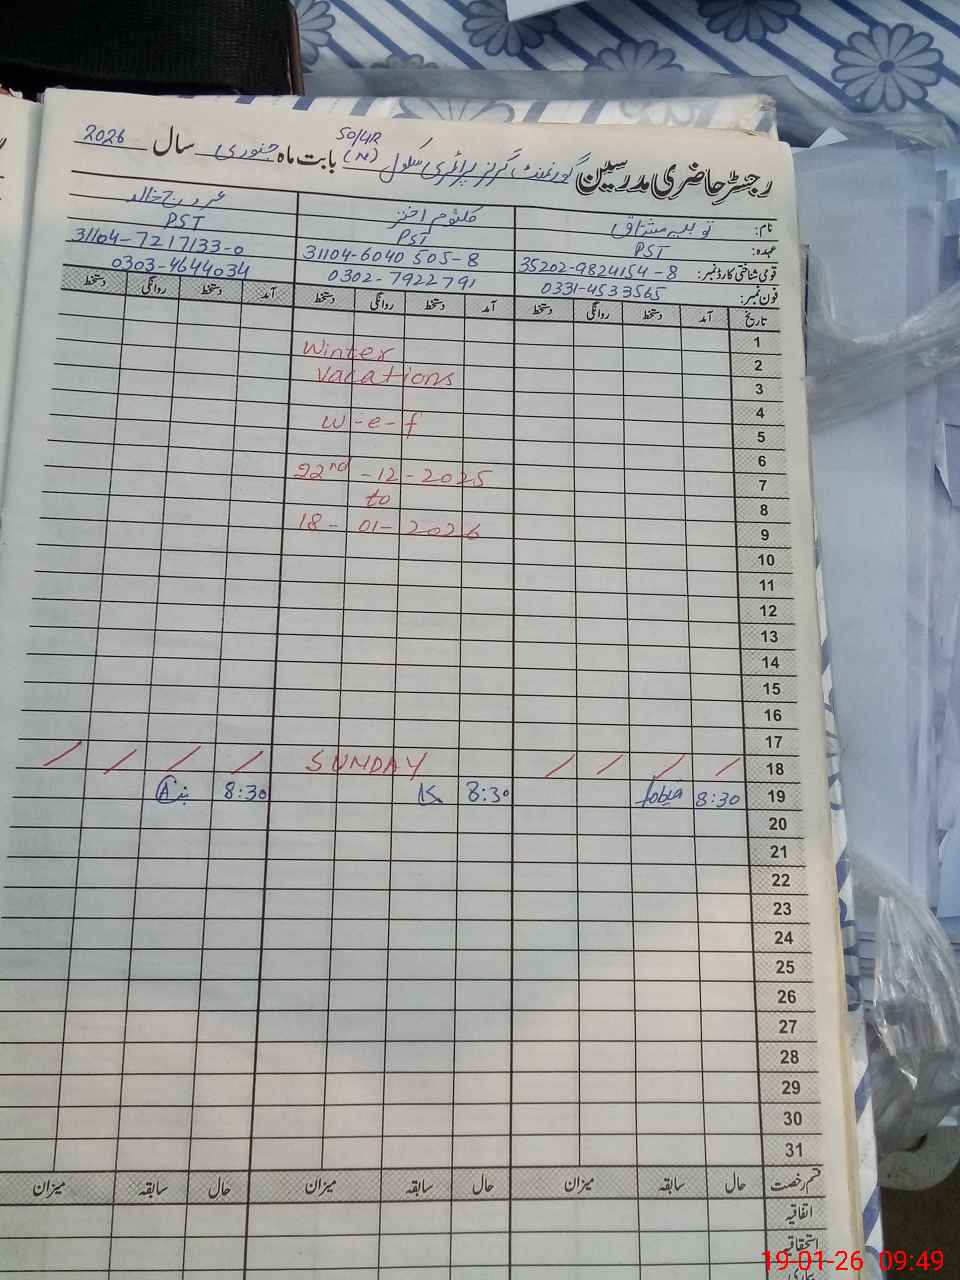 رجسٹر حاضری مدرسین گورنمنٹ گرلز پرائمری سکول 50/4R (N) بابت ماہ جنوری سال 2026
نام: ثوبیہ مشتاق کلثوم اختر عروج خالد
عہدہ: PST PST PST
قومی شناختی کارڈ نمبر: 35202-9824154-8 31104-6040505-8 31104-7217133-0
فون نمبر: 0331-4533565 0302-7922791 0303-4644034
تاریخ آمد دستخط روانگی دستخط آمد دستخط روانگی دستخط آمد دستخط روانگی دستخط
1
2 Winter
3 Vacations
4
5 W-e-f
6
7 22nd-12-2025
8 to
9 18-01-2026
10
11
12
13
14
15
16
17
18 SUNDAY
19 8:30 8:30 8:30
20
21
22
23
24
25
26
27
28
29
30
31
قسم رخصت حال سابقہ میزان حال سابقہ میزان حال سابقہ میزان
اتفاقیہ
استحقاقیہ
19-01-26 09:49